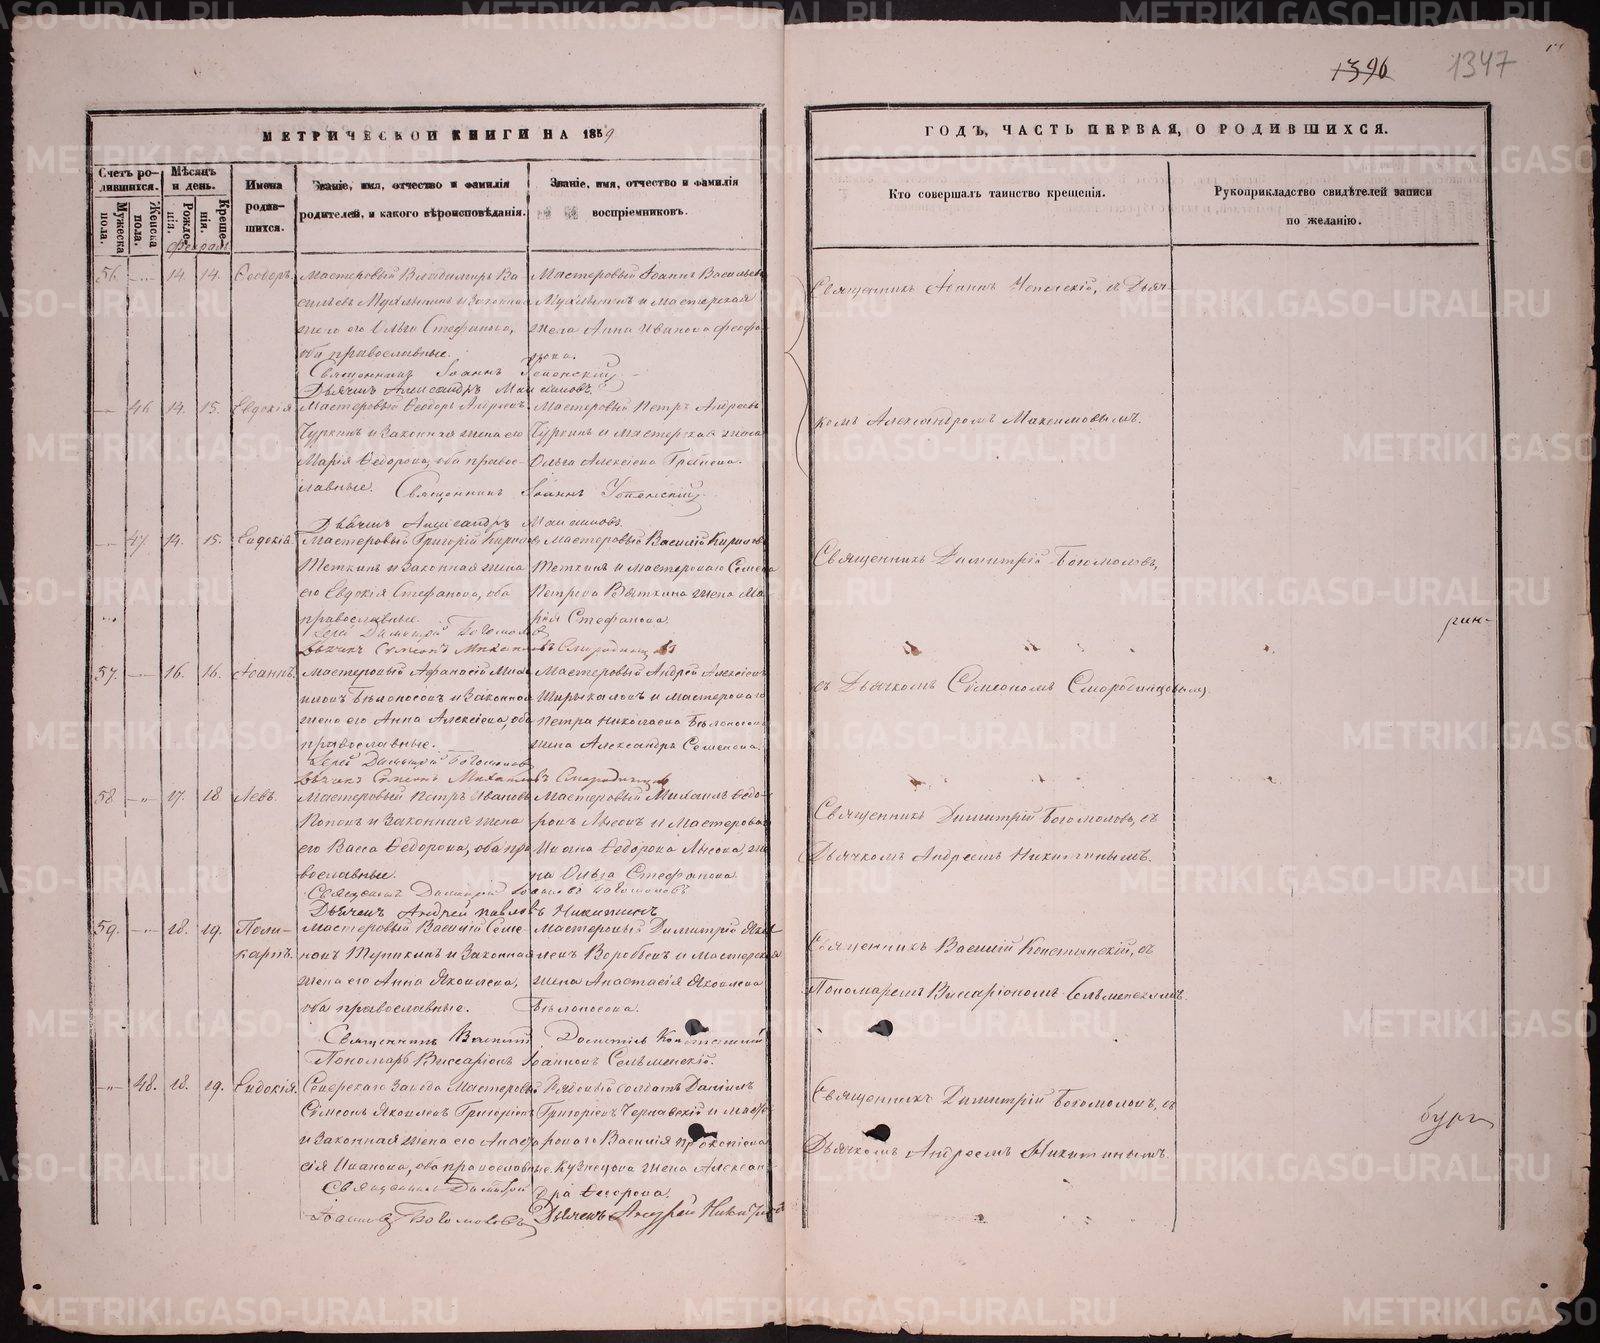 1396 1347
МЕТРИЧЕСКОЙ КНИГИ НА 1859
ГОДЪ, ЧАСТЬ ПЕРВАЯ, О РОДИВШИХСЯ.
Счетъ ро-
дившихся.
Мужеска пола.
Женска пола.
Мѣсяцъ и день.
Рожденія.
Крещенія.
Имена родив-
шихся.
Званіе, имя, отчество и фамилія
родителей, и какого вѣроисповѣданія.
Званіе, имя, отчество и фамилія
воспріемниковъ.
Кто совершалъ таинство крещенія.
Рукоприкладство свидѣтелей записи
по желанію.
56. 14. 14. Ѳеодоръ. Мастеровый Владимиръ Ва- Мастеровый Іоаннъ Васильевъ
жена его Ольга Стефанова, жена Анна Иванова
оба православные.
Священникъ Іоаннъ Успенскій
Дьячекъ Александръ Максимовъ.
Священникъ Іоаннъ Успенскій, съ Дьяч-
46 14. 15. Евдокія Мастеровый Ѳеодоръ Андреевъ Мастеровый Петръ Андреевъ
Чуркинъ и законная жена его Чуркинъ и мастерская жена
Марія Ѳедорова, оба правос- Ольга Алексіева
лавные. Священникъ Іоаннъ Успенскій
Дьячекъ Александръ Максимовъ.
комъ Александромъ Максимовымъ.
47 14. 15. Евдокія. Мастеровый Григорій Кирилловъ Мастеровый Василій Кирилловъ
Теткинъ и законная жена Теткинъ и мастероваго Семена
его Евдокія Стефанова, оба Петрова жена Ма-
православные. рія Стефанова.
Іерей Димитрій Богомоловъ
Дьячекъ Симеонъ Михайловъ Смородинцовъ
Священникъ Димитрій Богомоловъ,
рин-
57. 16. 16. Іоаннъ. Мастеровый Афанасій Мастеровый Андрей Алексіевъ
Бѣлоносовъ и законная и мастероваго
жена его Анна Алексіева, оба Петра Николаева Бѣлоносова
православные. жена Александра Семенова.
Іерей Димитрій Богомоловъ
Дьячекъ Симеонъ Михайловъ Смородинцовъ
съ Дьячкомъ Симеономъ Смородинцовымъ
58 17. 18 Левъ. Мастеровый Петръ Ивановъ Мастеровый Михаилъ Ѳедо-
Поповъ и законная жена ровъ Лысовъ и мастероваго
его Васса Ѳедорова, оба пра Ивана Ѳедорова Лысова, же
вославные. на Ольга Стефанова.
Священникъ Димитрій Іоанновъ Богомоловъ
Дьячекъ Андрей Павловъ Никитинъ
Священникъ Димитрій Богомоловъ, съ
Дьячкомъ Андреемъ Никитинымъ.
59. 18. 19. Поли- Мастеровый Василій Семе- Мастеровый Димитрій Яков
карпъ. новъ Тупикинъ и законная левъ Воробьевъ и мастерская
жена его Анна Яковлева, жена Анастасія Яковлева
оба православные. Бѣлоносова.
Священникъ Василій
Пономарь Виссаріонъ Іоанновъ Сельменскій.
Священникъ Василій Константинскій, съ
Пономаремъ Виссаріономъ Сельменскимъ.
48. 18. 19. Евдокія. Сысерскаго завода мастеровый Рядовый солдатъ Даніилъ
Симеонъ Яковлевъ Григорьевъ Григорьевъ Чернавскій и масте-
и законная жена его Анаста роваго Василія Прокопьева
сія Иванова, оба православные. Кузнецова жена Алексан-
Священникъ Димитрій дра Ѳедорова.
Іоанновъ Богомоловъ Дьячекъ Андрей Никитинъ
Священникъ Димитрій Богомоловъ, съ
Дьячкомъ Андреемъ Никитинымъ.
бург
METRIKI.GASO-URAL.RU